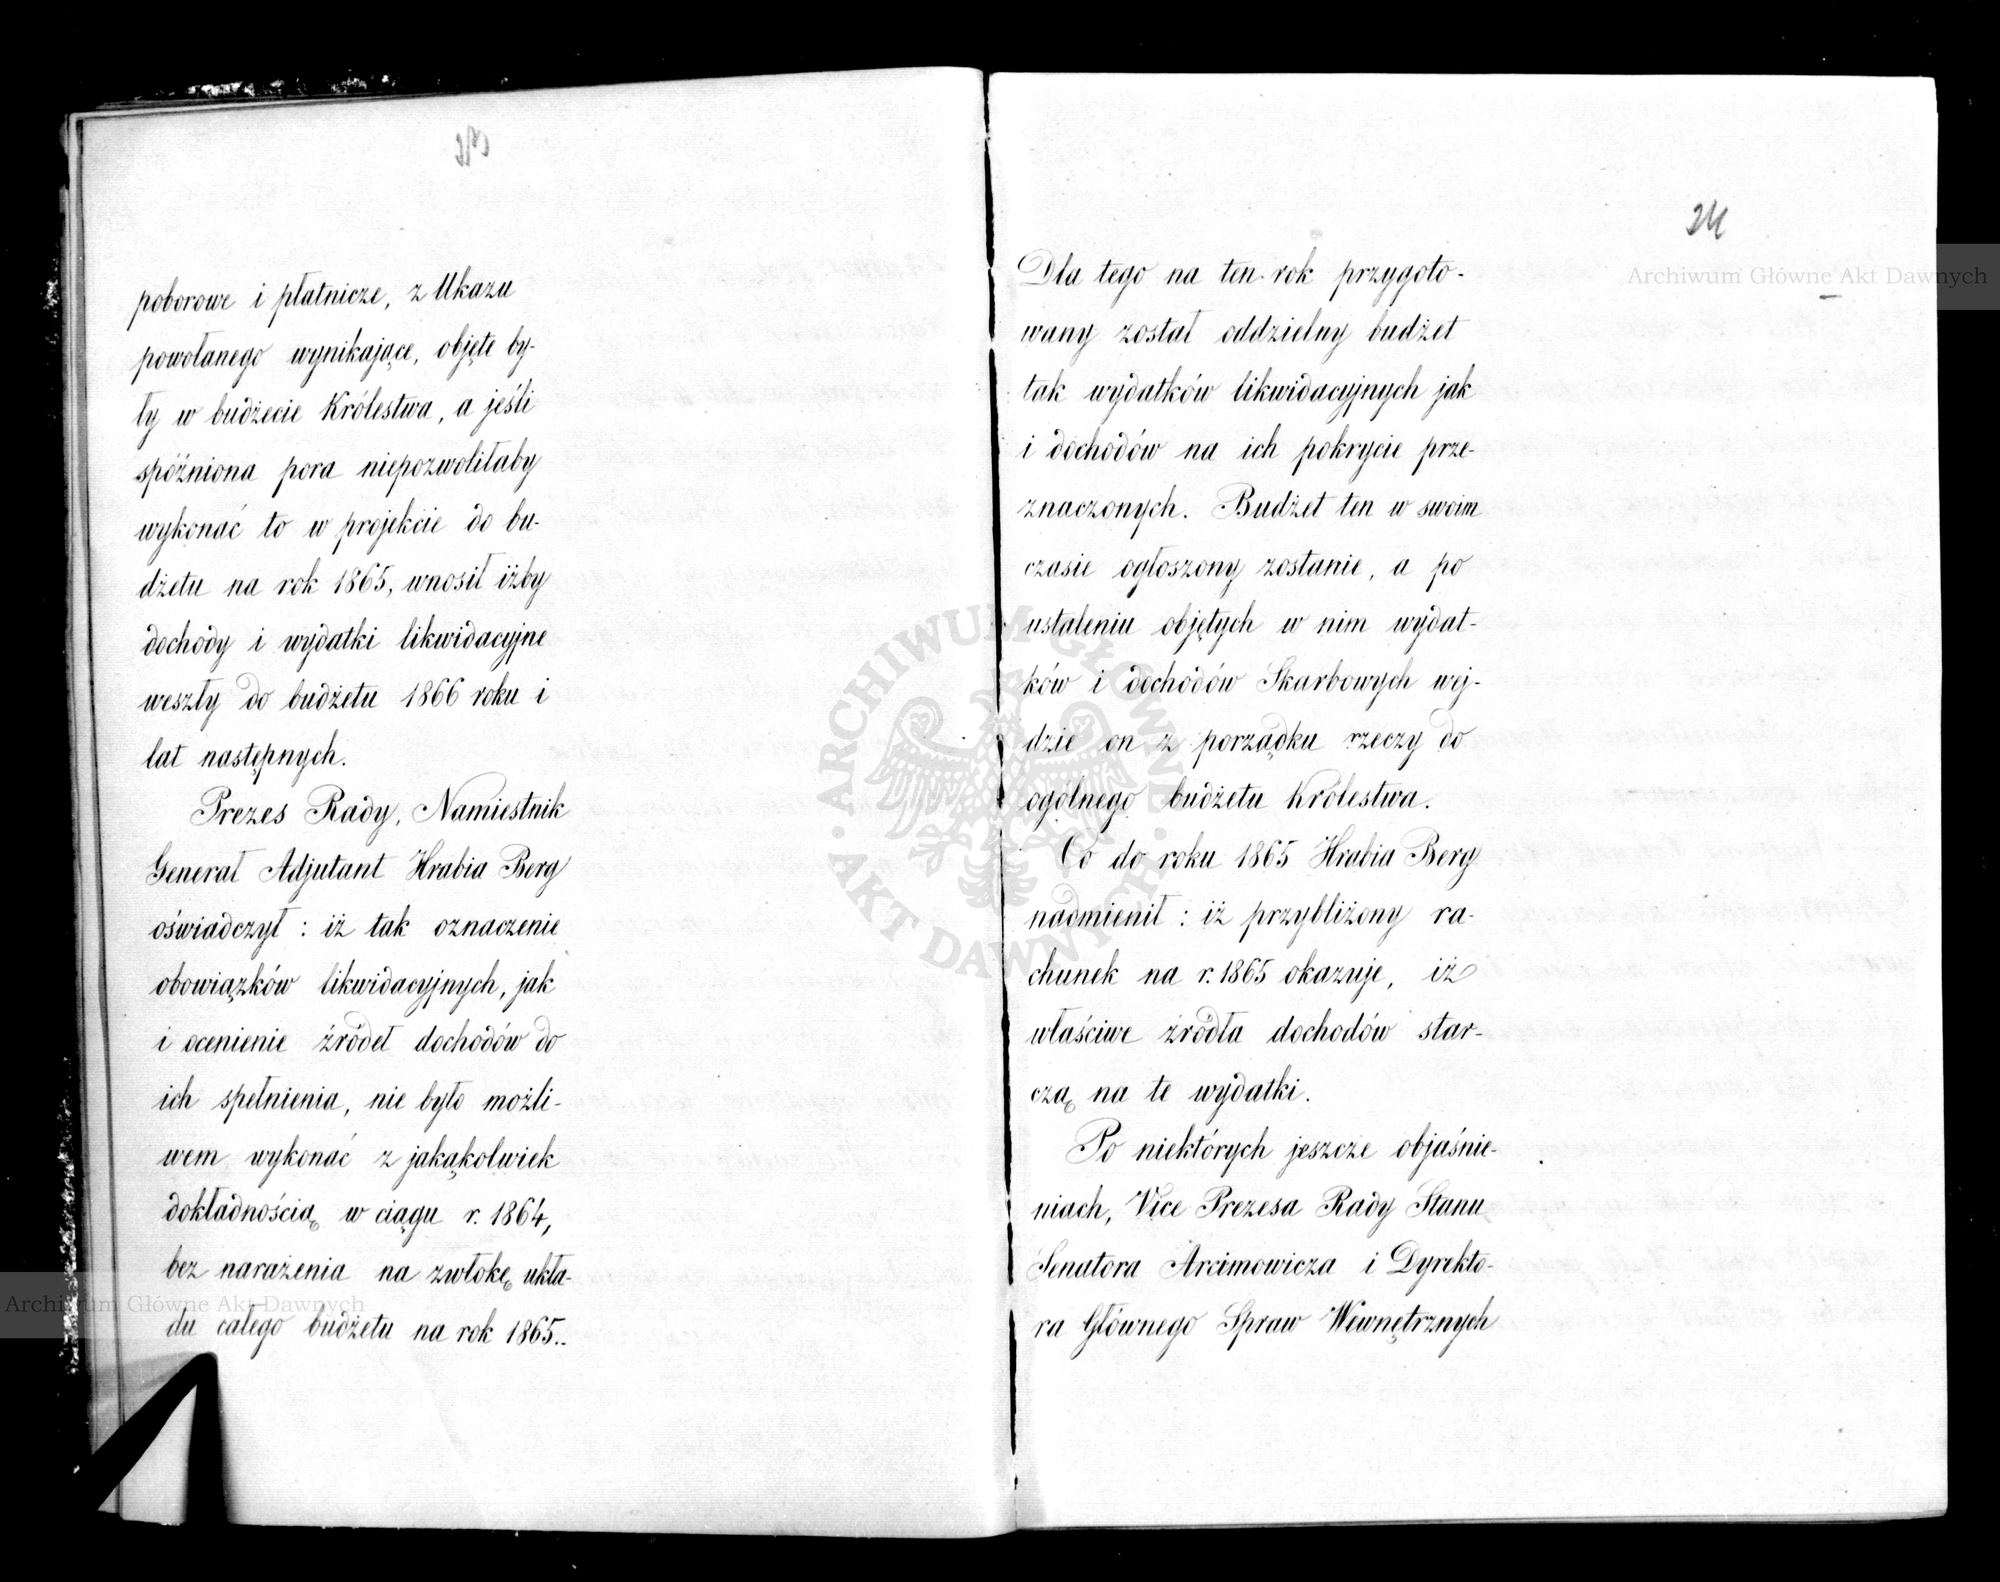 poborowe i płatnicze, z Ukazu
powołanego wynikające, objęte by-
ły w budżecie Królestwa, a jeśli
spóźniona pora niepozwoliłaby
wykonać to w projekcie do bu-
dżetu na rok 1865, wnosił iżby
dochody i wydatki likwidacyjne
weszły do budżetu 1866 roku i
lat następnych.
Prezes Rady, Namiestnik
Generał Adjutant Hrabia Berg
oświadczył : iż tak oznaczenie
obowiązków likwidacyjnych, jak
i ocenienie źródeł dochodów do
ich spełnienia, nie było możli-
wem wykonać z jakąkolwiek
dokładnością w ciągu r. 1864,
bez narażenia na zwłokę ukła-
du całego budżetu na rok 1865..
24
Dla tego na ten rok przygoto-
wany został oddzielny budżet
tak wydatków likwidacyjnych jak
i dochodów na ich pokrycie prze-
znaczonych. Budżet ten w swoim
czasie ogłoszony zostanie, a po
ustaleniu objętych w nim wydat-
ków i dochodów Skarbowych wej-
dzie on z porządku rzeczy do
ogólnego budżetu Królestwa.
Co do roku 1865 Hrabia Berg
nadmienił : iż przybliżony ra-
chunek na r. 1865 okazuje, iż
właściwe źródła dochodów star-
czą na te wydatki.
Po niektórych jeszcze objaśnie-
niach, Vice Prezesa Rady Stanu
Senatora Arcimowicza i Dyrekto-
ra Głównego Spraw Wewnętrznych
Archiwum Główne Akt Dawnych
ARCHIWUM GŁÓWNE AKT DAWNYCH
Archiwum Główne Akt Dawnych